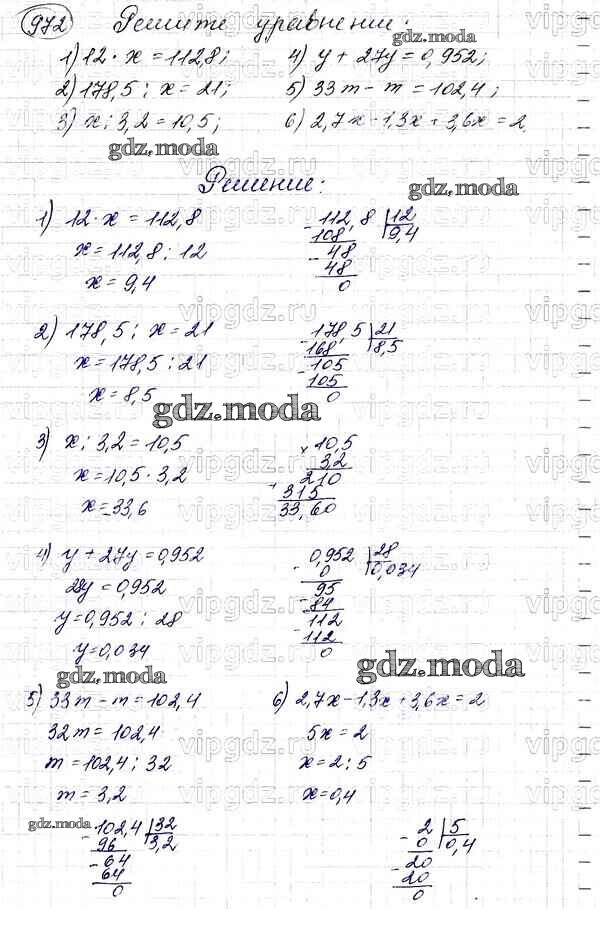 972 Решите уравнении:
1) 12 · x = 112,8; 4) y + 27y = 0,952;
2) 178,5 : x = 21; 5) 33m - m = 102,4;
3) x : 3,2 = 10,5; 6) 2,7x - 1,3x + 3,6x = 2
gdz.moda
gdz.moda
Решение:
gdz.moda
1) 12 · x = 112,8
x = 112,8 : 12
x = 9,4
112,8 | 12
108 9,4
48
48
0
2) 178,5 : x = 21
x = 178,5 : 21
x = 8,5
178,5 | 21
168 8,5
105
105
0
gdz.moda
3) x : 3,2 = 10,5
x = 10,5 · 3,2
x = 33,6
× 10,5
3,2
210
+ 315
33,60
4) y + 27y = 0,952
28y = 0,952
y = 0,952 : 28
y = 0,034
0,952 | 28
0 0,034
95
84
112
112
0
gdz.moda
gdz.moda
5) 33m - m = 102,4
32m = 102,4
m = 102,4 : 32
m = 3,2
gdz.moda
102,4 | 32
96 3,2
64
64
0
6) 2,7x - 1,3x + 3,6x = 2
5x = 2
x = 2 : 5
x = 0,4
2 | 5
0 0,4
20
20
0
vipgdz.ru